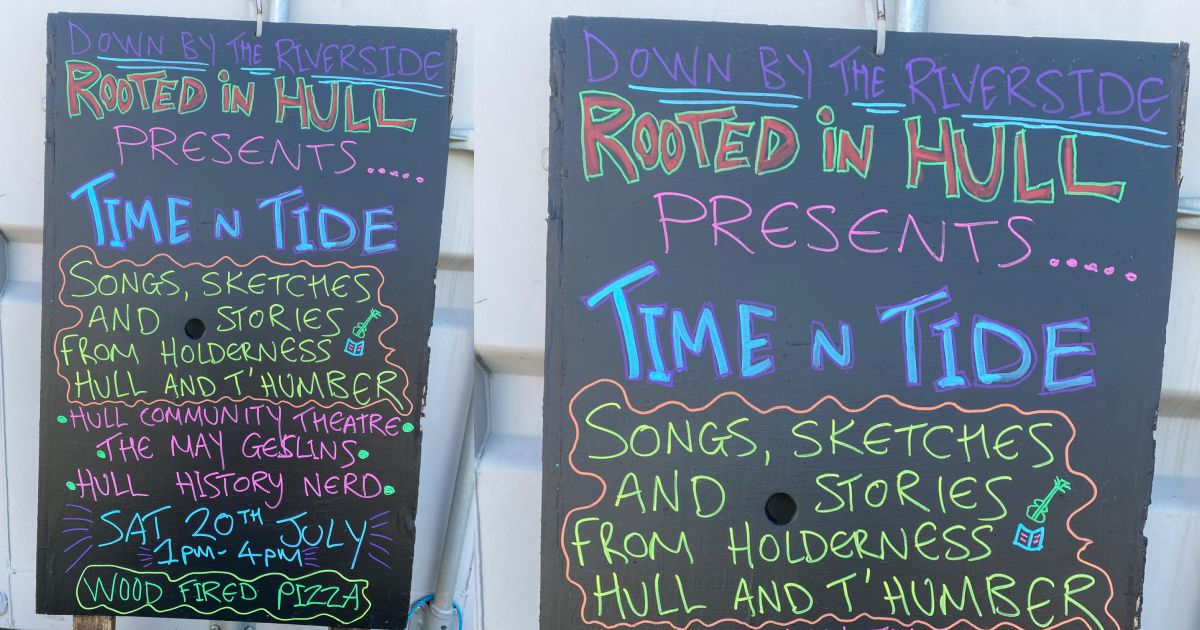 DOWN BY THE RIVERSIDE
ROOTED iN HULL
PRESENTS.....
TIME N TIDE
SONGS, SKETCHES
AND STORIES
FROM HOLDERNESS
HULL AND T'HUMBER
HULL COMMUNITY THEATRE
THE MAY GESLINS
HULL HISTORY NERD
SAT 20TH JULY
1PM-4PM
WOOD FIRED PIZZA
DOWN BY THE RIVERSIDE
ROOTED iN HULL
PRESENTS.....
TIME N TIDE
SONGS, SKETCHES
AND STORIES
FROM HOLDERNESS
HULL AND T'HUMBER